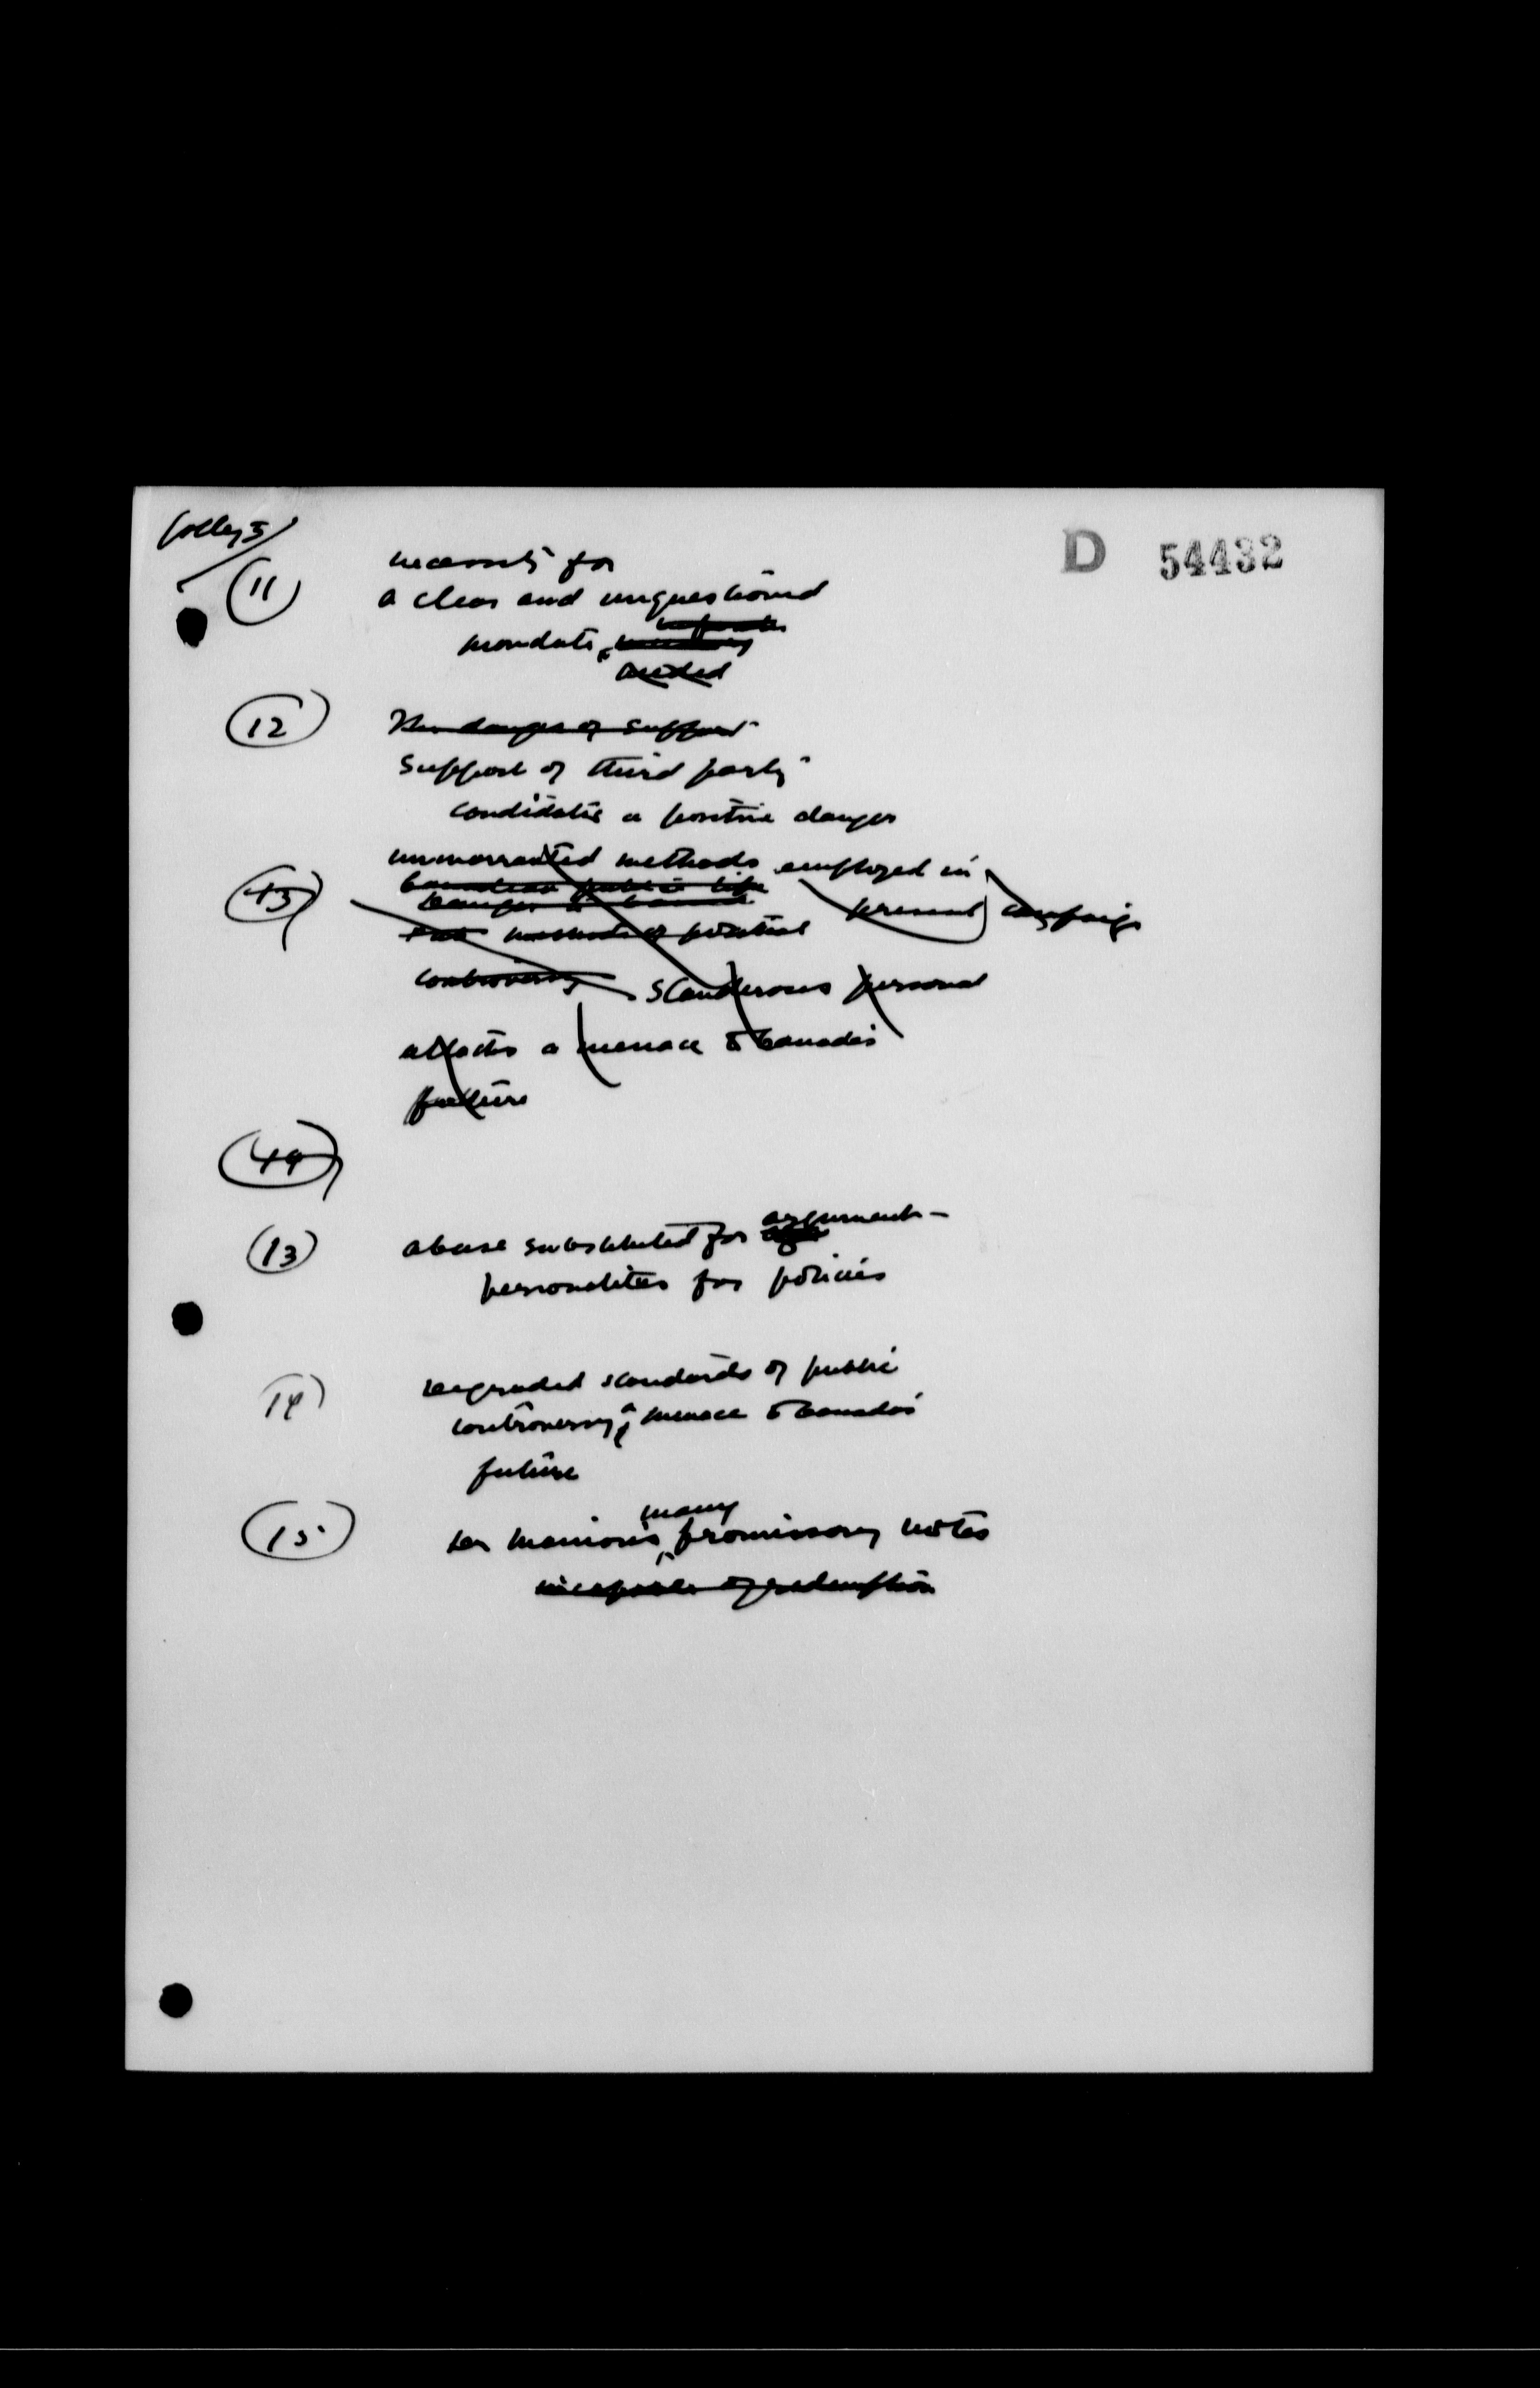 D 54432
(11) necessity for
a clear and unquestioned
mandate
needed
(12) The danger of support
Support of third party
candidates a positive danger
(13) unwarranted methods employed in
present campaign
Canadian public life
Danger to Canada
methods of political
controversy slanderous personal
attacks a menace to Canada's
future
(14)
(13) abuse substituted for argument –
personalities for policies
14) Degraded standards of public
controversy a menace to Canada's
future
(15) Dr Manion's many promissory notes
incapable of redemption